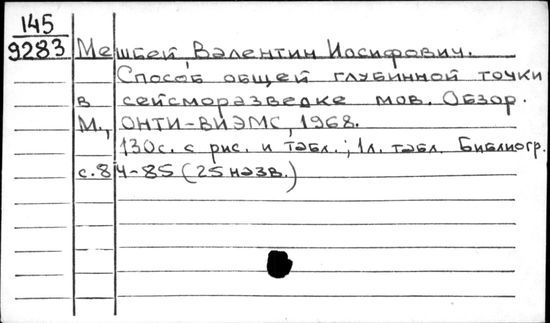 145
9283 Мешбей, Валентин Иосифович.
Способ общей глубинной точки
в сейсморазведке мов. Обзор.
М., ОНТИ-ВИЭМС, 1968.
130с. с рис. и табл.; 1л. табл. Библиогр.
с.84-85 (25 назв.)